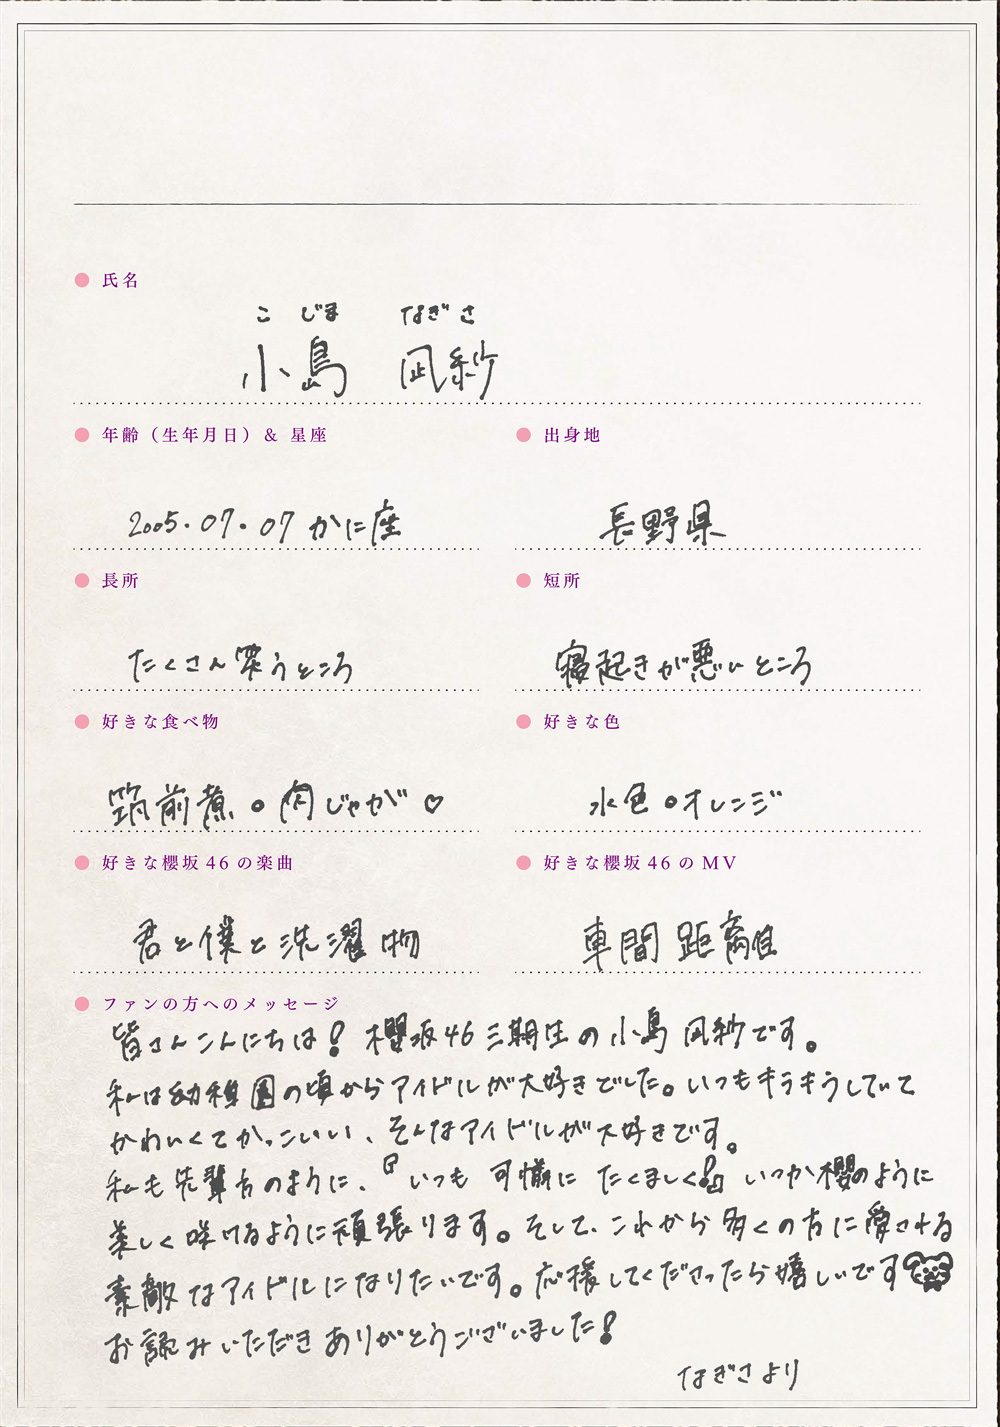 氏名
こ じま なぎさ
小島 凪紗
年齢（生年月日）& 星座
出身地
2005.07.07 かに座
長野県
長所
短所
たくさん笑うところ
寝起きが悪いところ
好きな食べ物
好きな色
筑前煮。肉じゃが♡
水色。オレンジ
好きな櫻坂46の楽曲
好きな櫻坂46のMV
君と僕と洗濯物
車間距離
ファンの方へのメッセージ
皆さんこんにちは！櫻坂46三期生の小島凪紗です。
私は幼稚園の頃からアイドルが大好きでした。いつもキラキラしていて
かわいくてかっこいい、そんなアイドルが大好きです。
私も先輩方のように、『いつも可憐にたくましく！』いつか櫻のように
美しく咲けるように頑張ります。そして、これから多くの方に愛される
素敵なアイドルになりたいです。応援してくださったら嬉しいです
お読みいただきありがとうございました！
なぎさより